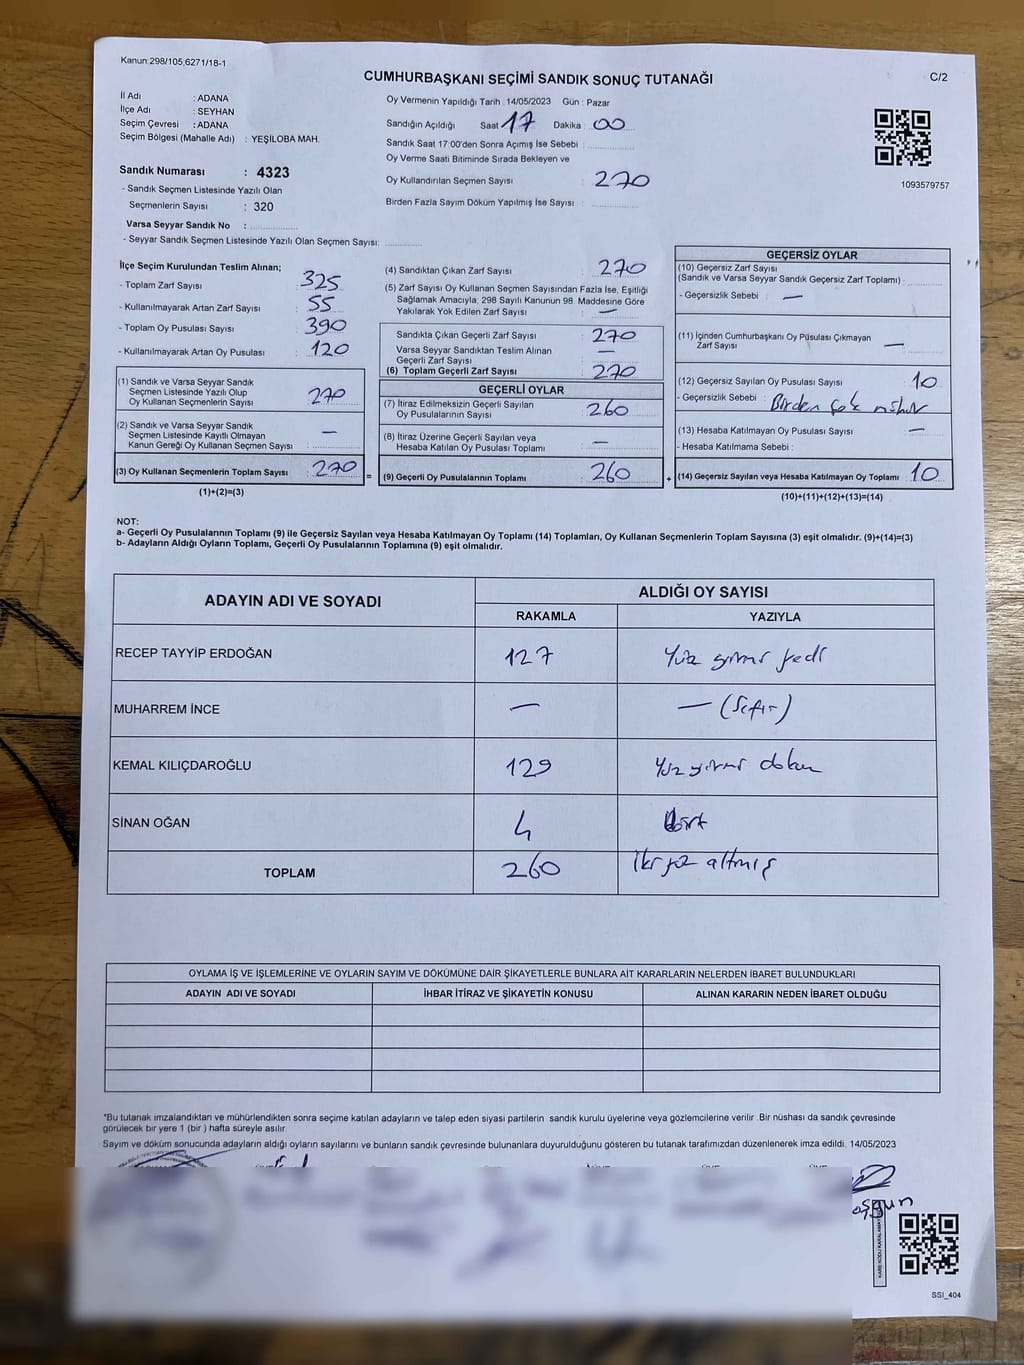 Kanun:298/105;6271/18-1
CUMHURBAŞKANI SEÇİMİ SANDIK SONUÇ TUTANAĞI
C/2
İl Adı : ADANA
İlçe Adı : SEYHAN
Seçim Çevresi : ADANA
Seçim Bölgesi (Mahalle Adı) : YEŞİLOBA MAH.
Sandık Numarası : 4323
- Sandık Seçmen Listesinde Yazılı Olan
Seçmenlerin Sayısı : 320
Varsa Seyyar Sandık No :
- Seyyar Sandık Seçmen Listesinde Yazılı Olan Seçmen Sayısı:
Oy Vermenin Yapıldığı Tarih : 14/05/2023 Gün : Pazar
Sandığın Açıldığı Saat 17 Dakika 00
Sandık Saat 17:00'den Sonra Açımış İse Sebebi :
Oy Verme Saati Bitiminde Sırada Bekleyen ve
Oy Kullandırılan Seçmen Sayısı : 270
Birden Fazla Sayım Döküm Yapılmış İse Sayısı :
1093579757
İlçe Seçim Kurulundan Teslim Alınan;
- Toplam Zarf Sayısı : 325
- Kullanılmayarak Artan Zarf Sayısı : 55
- Toplam Oy Pusulası Sayısı : 390
- Kullanılmayarak Artan Oy Pusulası : 120
(1) Sandık ve Varsa Seyyar Sandık
Seçmen Listesinde Yazılı Olup
Oy Kullanan Seçmenlerin Sayısı : 270
(2) Sandık ve Varsa Seyyar Sandık
Seçmen Listesinde Kayıtlı Olmayan
Kanun Gereği Oy Kullanan Seçmen Sayısı : —
(3) Oy Kullanan Seçmenlerin Toplam Sayısı : 270
(1)+(2)=(3)
(4) Sandıktan Çıkan Zarf Sayısı : 270
(5) Zarf Sayısı Oy Kullanan Seçmen Sayısından Fazla İse, Eşitliği
Sağlamak Amacıyla, 298 Sayılı Kanunun 98. Maddesine Göre
Yakılarak Yok Edilen Zarf Sayısı : —
Sandıkta Çıkan Geçerli Zarf Sayısı : 270
Varsa Seyyar Sandıktan Teslim Alınan
Geçerli Zarf Sayısı : —
(6) Toplam Geçerli Zarf Sayısı : 270
GEÇERLİ OYLAR
(7) İtiraz Edilmeksizin Geçerli Sayılan
Oy Pusulalarının Sayısı : 260
(8) İtiraz Üzerine Geçerli Sayılan veya
Hesaba Katılan Oy Pusulası Toplamı : —
= (9) Geçerli Oy Pusulalarının Toplamı : 260
GEÇERSİZ OYLAR
(10) Geçersiz Zarf Sayısı
(Sandık ve Varsa Seyyar Sandık Geçersiz Zarf Toplamı) :
- Geçersizlik Sebebi : —
(11) İçinden Cumhurbaşkanı Oy Pusulası Çıkmayan
Zarf Sayısı : —
(12) Geçersiz Sayılan Oy Pusulası Sayısı : 10
- Geçersizlik Sebebi : Birden çok mühür
(13) Hesaba Katılmayan Oy Pusulası Sayısı : —
- Hesaba Katılmama Sebebi :
+ (14) Geçersiz Sayılan veya Hesaba Katılmayan Oy Toplamı : 10
(10)+(11)+(12)+(13)=(14)
NOT:
a- Geçerli Oy Pusulalarının Toplamı (9) ile Geçersiz Sayılan veya Hesaba Katılmayan Oy Toplamı (14) Toplamları, Oy Kullanan Seçmenlerin Toplam Sayısına (3) eşit olmalıdır. (9)+(14)=(3)
b- Adayların Aldığı Oyların Toplamı, Geçerli Oy Pusulalarının Toplamına (9) eşit olmalıdır.
ADAYIN ADI VE SOYADI
ALDIĞI OY SAYISI
RAKAMLA YAZIYLA
RECEP TAYYİP ERDOĞAN 127 Yüz yirmi yedi
MUHARREM İNCE — — (Sıfır)
KEMAL KILIÇDAROĞLU 129 Yüz yirmi dokuz
SİNAN OĞAN 4 dört
TOPLAM 260 iki yüz altmış
OYLAMA İŞ VE İŞLEMLERİNE VE OYLARIN SAYIM VE DÖKÜMÜNE DAİR ŞİKAYETLERLE BUNLARA AİT KARARLARIN NELERDEN İBARET BULUNDUKLARI
ADAYIN ADI VE SOYADI İHBAR İTİRAZ VE ŞİKAYETİN KONUSU ALINAN KARARIN NEDEN İBARET OLDUĞU
*Bu tutanak imzalandıktan ve mühürlendikten sonra seçime katılan adayların ve talep eden siyasi partilerin sandık kurulu üyelerine veya gözlemcilerine verilir .Bir nüshası da sandık çevresinde
görülecek bir yere 1 (bir ) hafta süreyle asılır.
Sayım ve döküm sonucunda adayların aldığı oyların sayılarını ve bunların sandık çevresinde bulunanlara duyurulduğunu gösteren bu tutanak tarafımızdan düzenlenerek imza edildi. 14/05/2023
SSI_404